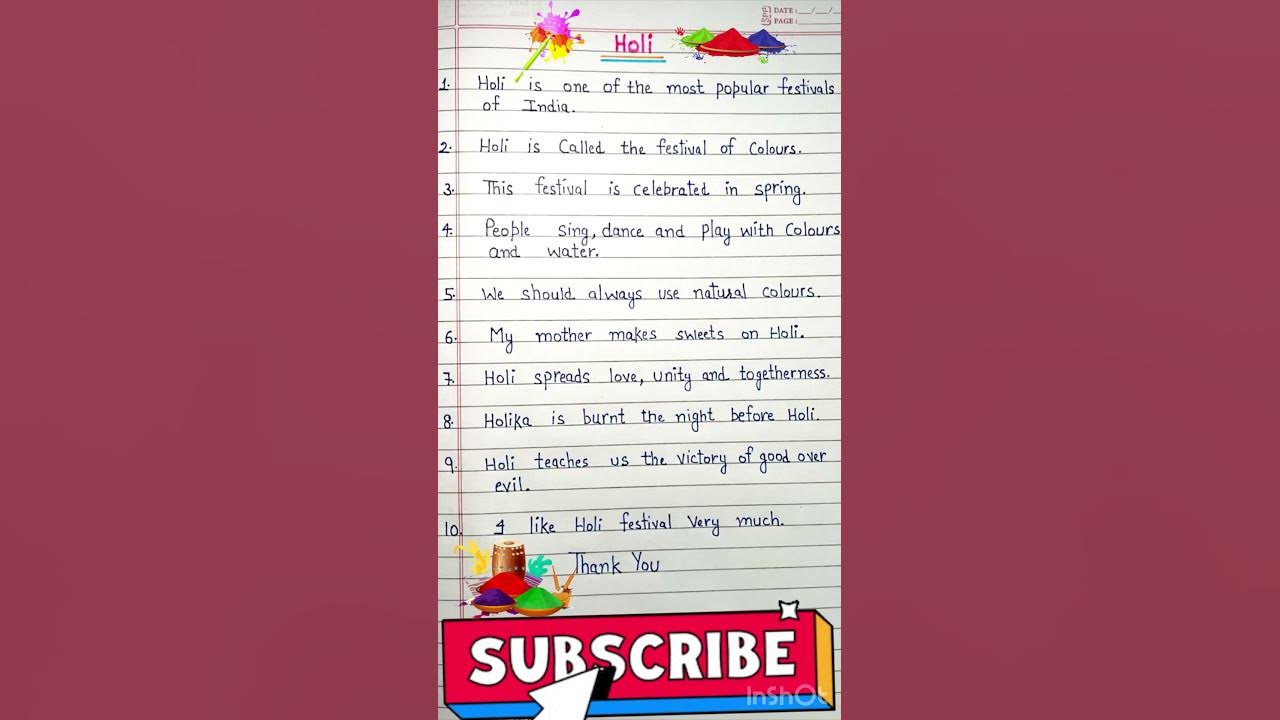 DATE: __/__/__
PAGE:
Holi
1. Holi is one of the most popular festivals
of India.
2. Holi is Called the festival of Colours.
3. This festival is celebrated in spring.
4. People sing, dance and play with Colours
and water.
5. We should always use natural colours.
6. My mother makes sweets on Holi.
7. Holi spreads love, unity and togetherness.
8. Holika is burnt the night before Holi.
9. Holi teaches us the victory of good over
evil.
10. I like Holi festival Very much.
Thank You
SUBSCRIBE
InShOt